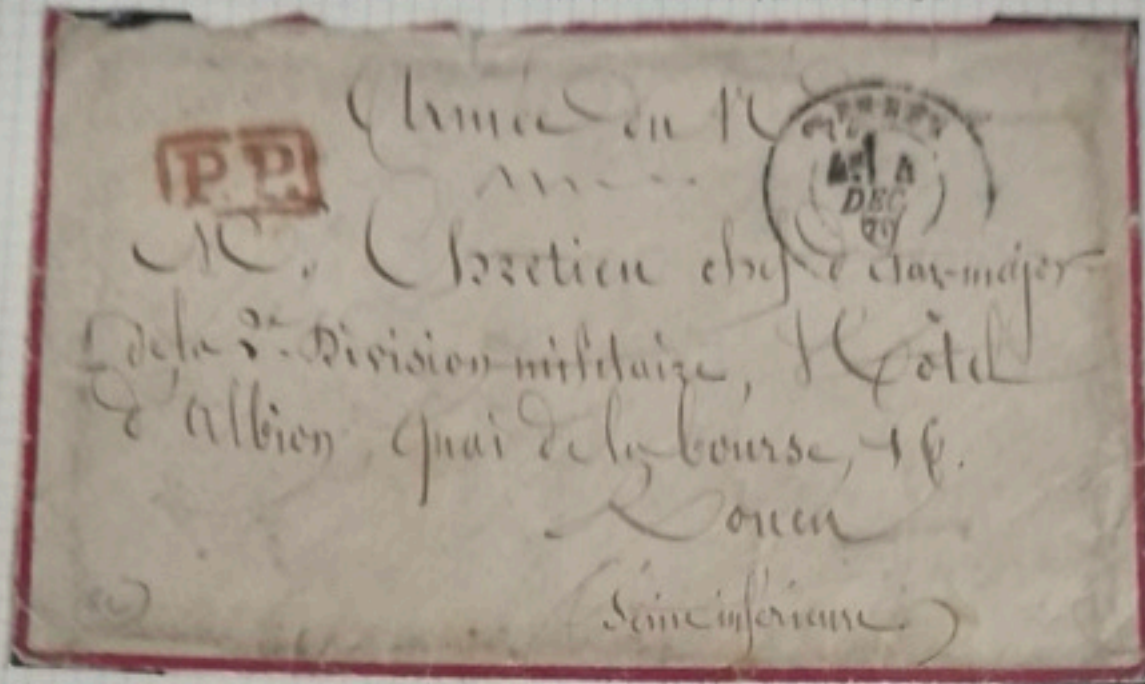 Armée du N
P.P.
DEC
Mr. Chretien chef d'état-major
de la 2e Division militaire, Hôtel
d'Albion, quai de la bourse, 16.
Rouen
Seine inférieure